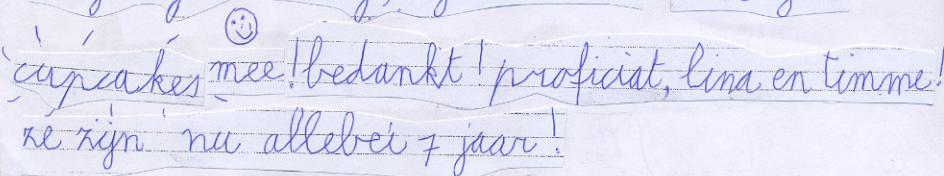 cupcakes mee! bedankt! proficiat, lina en timme!
ze zijn nu allebei 7 jaar!